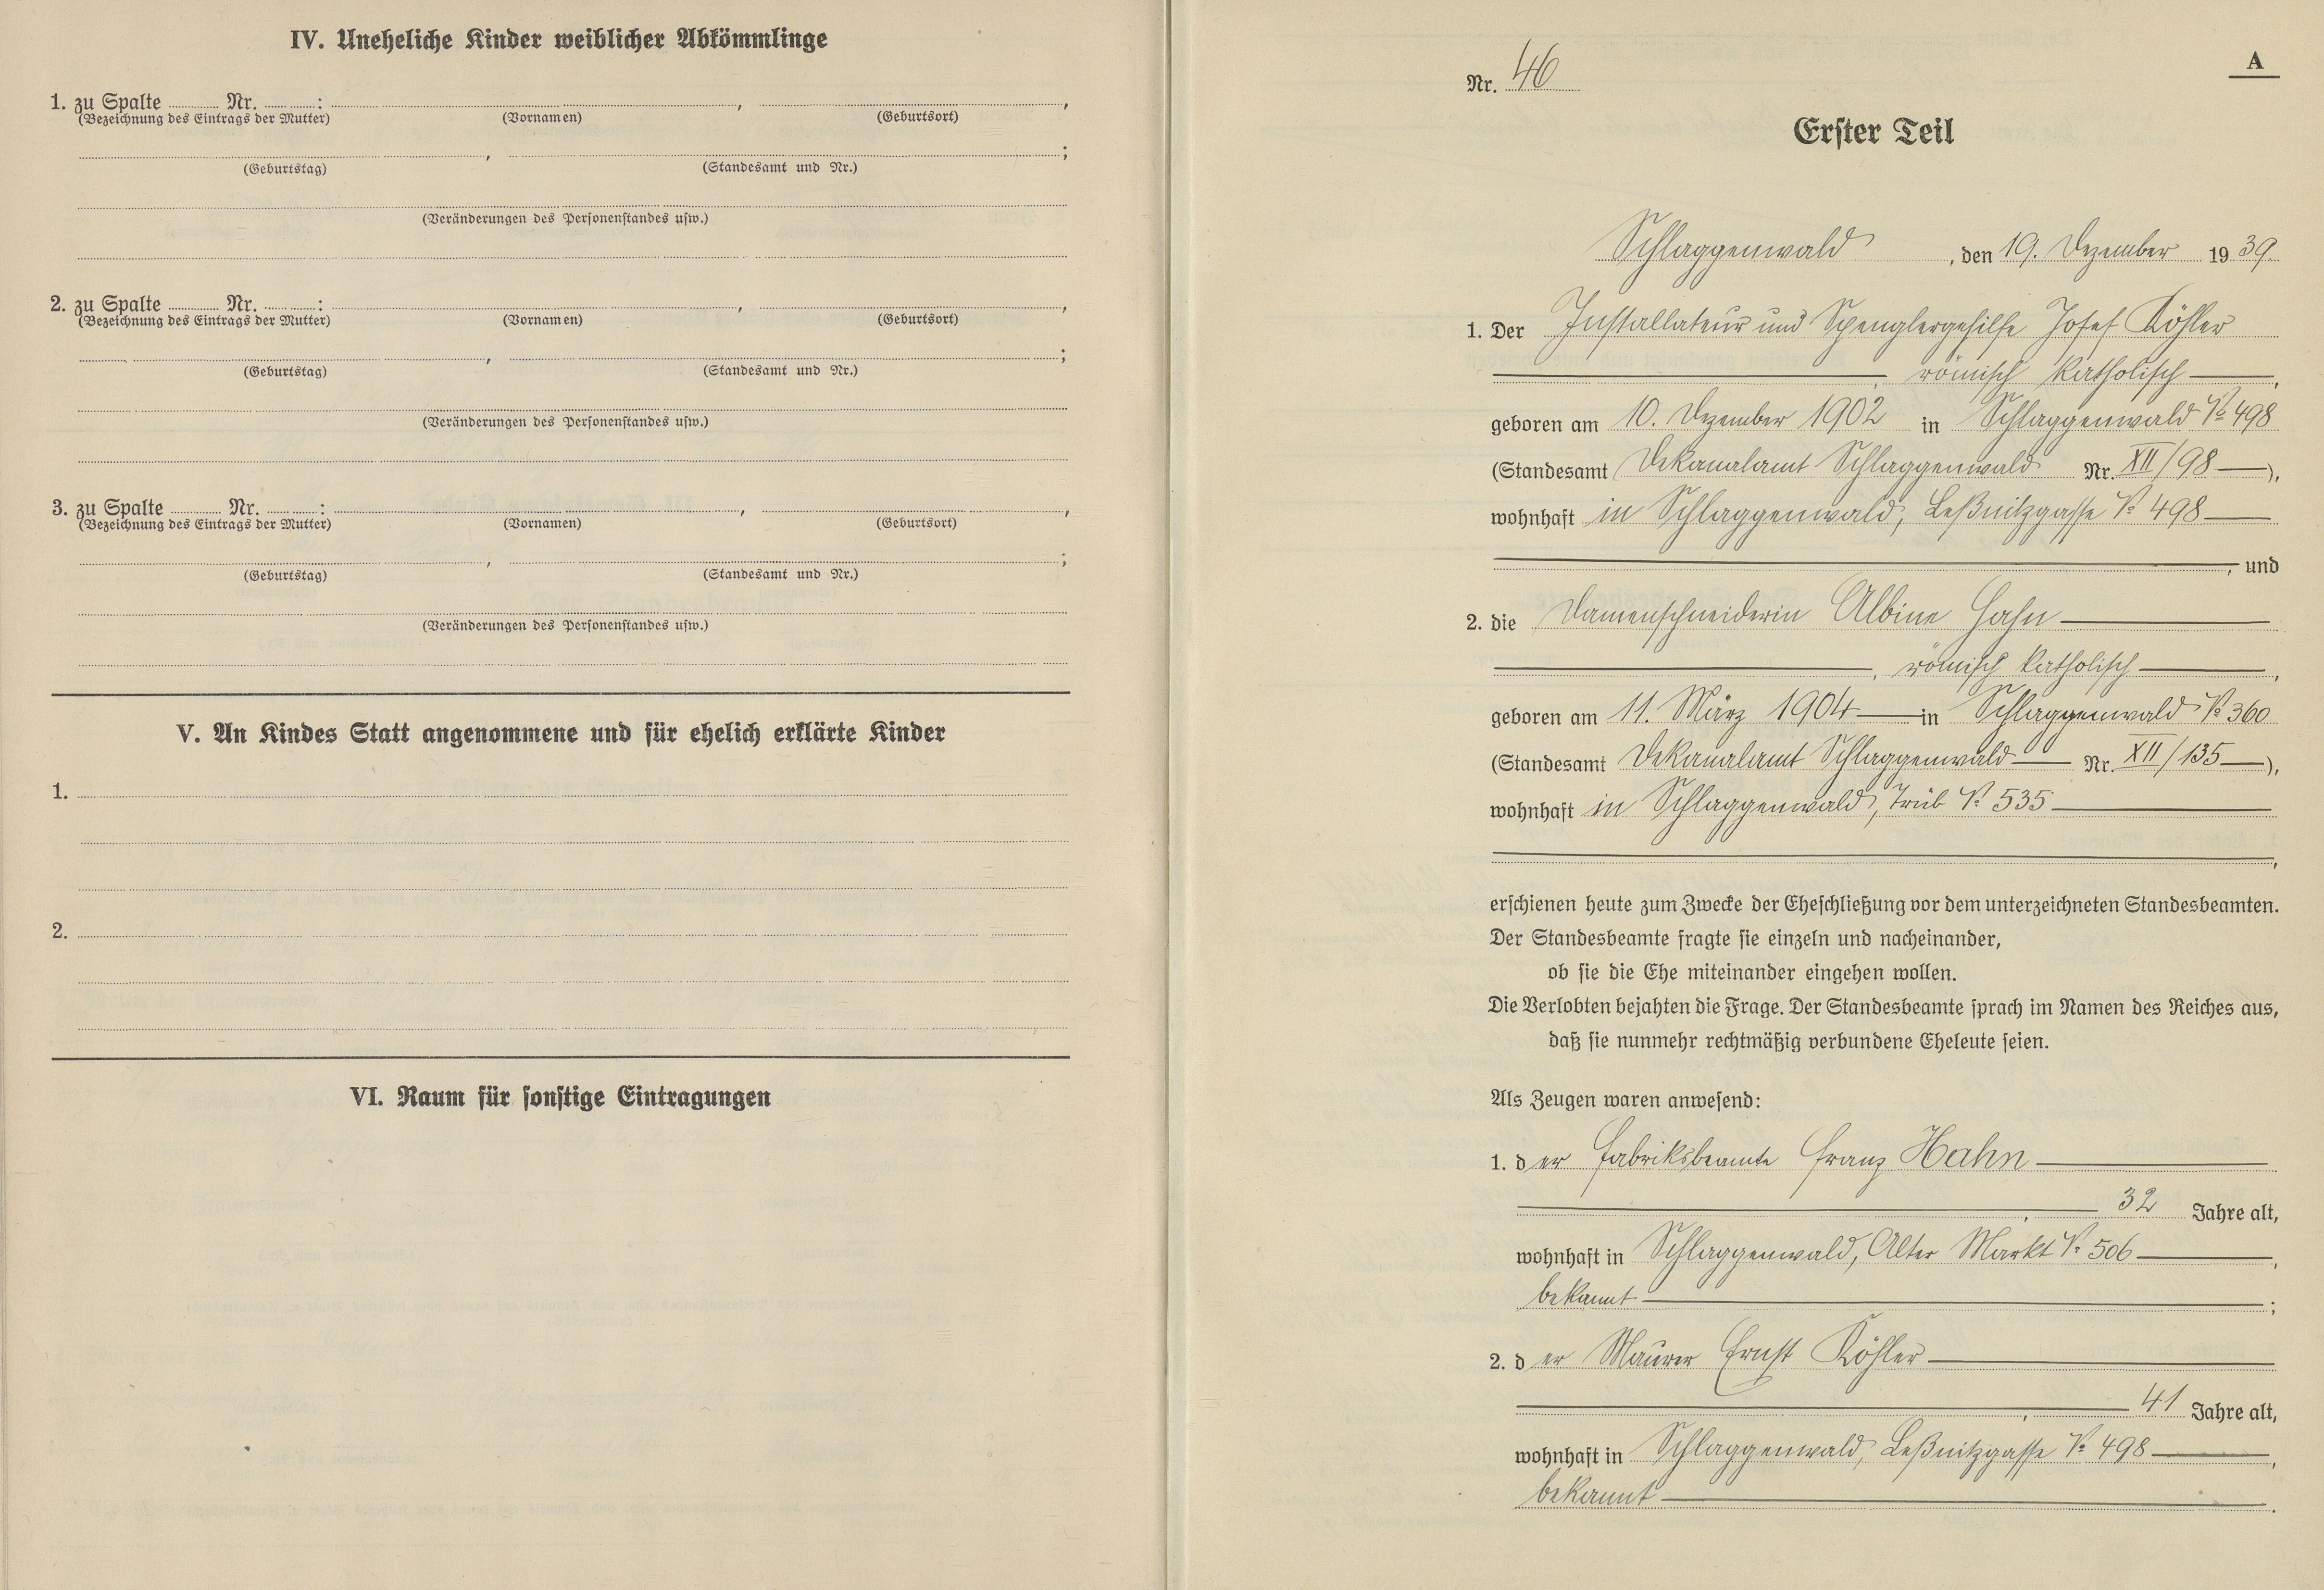 IV. Uneheliche Kinder weiblicher Abkömmlinge
1. zu Spalte ........ Nr. ........: ........, ........,
(Bezeichnung des Eintrags der Mutter) (Vornamen) (Geburtsort)
........, ........;
(Geburtstag) (Standesamt und Nr.)
(Veränderungen des Personenstandes usw.)
2. zu Spalte ........ Nr. ........: ........, ........,
(Bezeichnung des Eintrags der Mutter) (Vornamen) (Geburtsort)
........, ........;
(Geburtstag) (Standesamt und Nr.)
(Veränderungen des Personenstandes usw.)
3. zu Spalte ........ Nr. ........: ........, ........,
(Bezeichnung des Eintrags der Mutter) (Vornamen) (Geburtsort)
........, ........;
(Geburtstag) (Standesamt und Nr.)
(Veränderungen des Personenstandes usw.)
V. An Kindes Statt angenommene und für ehelich erklärte Kinder
1.
2.
VI. Raum für sonstige Eintragungen
A
Nr. 46
Erster Teil
Schlaggenwald, den 19. Dezember 1939.
1. Der Installateur und Spenglergehilfe Josef Köhler
, römisch katholisch,
geboren am 10. Dezember 1902 in Schlaggenwald № 498
(Standesamt Dekanalamt Schlaggenwald Nr. XII/98),
wohnhaft in Schlaggenwald, Leßnitzgasse № 498
, und
2. die Damenschneiderin Albine Hahn
, römisch katholisch,
geboren am 11. März 1904 in Schlaggenwald № 360
(Standesamt Dekanalamt Schlaggenwald Nr. XII/135),
wohnhaft in Schlaggenwald, Trüb № 535
,
erschienen heute zum Zwecke der Eheschließung vor dem unterzeichneten Standesbeamten.
Der Standesbeamte fragte sie einzeln und nacheinander,
ob sie die Ehe miteinander eingehen wollen.
Die Verlobten bejahten die Frage. Der Standesbeamte sprach im Namen des Reiches aus,
daß sie nunmehr rechtmäßig verbundene Eheleute seien.
Als Zeugen waren anwesend:
1. der Fabriksbeamte Franz Hahn
, 32 Jahre alt,
wohnhaft in Schlaggenwald, Alter Markt № 506,
bekannt;
2. der Maurer Ernst Köhler
, 41 Jahre alt,
wohnhaft in Schlaggenwald, Leßnitzgasse № 498,
bekannt.